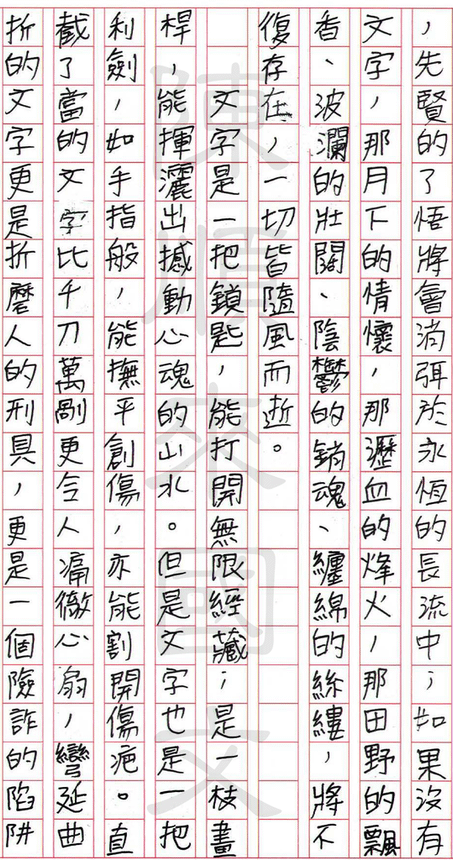 ，先賢的了悟將會消弭於永恆的長流中；如果沒有
文字，那月下的情懷，那瀝血的烽火，那田野的飄
香、波瀾的壯闊、陰鬱的銷魂、纏綿的絲縷，將不
復存在，一切皆隨風而逝。
文字是一把鎖匙，能打開無限經藏；是一枝畫
桿，能揮灑出撼動心魂的山水。但是文字也是一把
利劍，如手指般，能撫平創傷，亦能割開傷疤。直
截了當的文字比千刀萬剮更令人痛徹心扇，彎延曲
折的文字更是折磨人的刑具，更是一個險詐的陷阱
陳順來國文